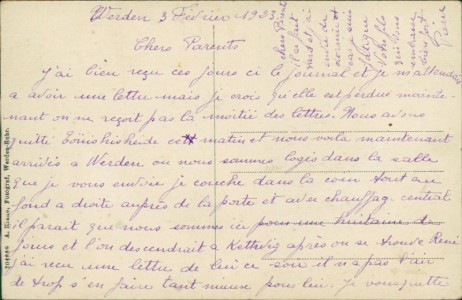 Werden 3 Février 1923.
Chers Parents
J'ai bien reçu ces jours ci le journal et je m'attendais
a avoir une lettre mais je crois qu'elle est perdue mainte-
nant on ne reçoit pas la moitié des lettres. Nous avons
quitté cett matin et nous voila maintenant
arrivés a Werden ou nous sommes logés dans la salle
que je vous envoie je couche dans la coin tout au
fond a droite auprès de la porte et avec chauffag. central
il parait que nous sommes ici pour une huitaine de
jours et l'on descendrait a Kettwig après on se trouve René
j'ai recu une lettre de lui ce soir il n'a pas l'air
de trop s'en faire tant mieux pour lui. Je vous quitte
chers Parents
Votre fils
qui vous
embrasse
bien fort
Werden-Ruhr.